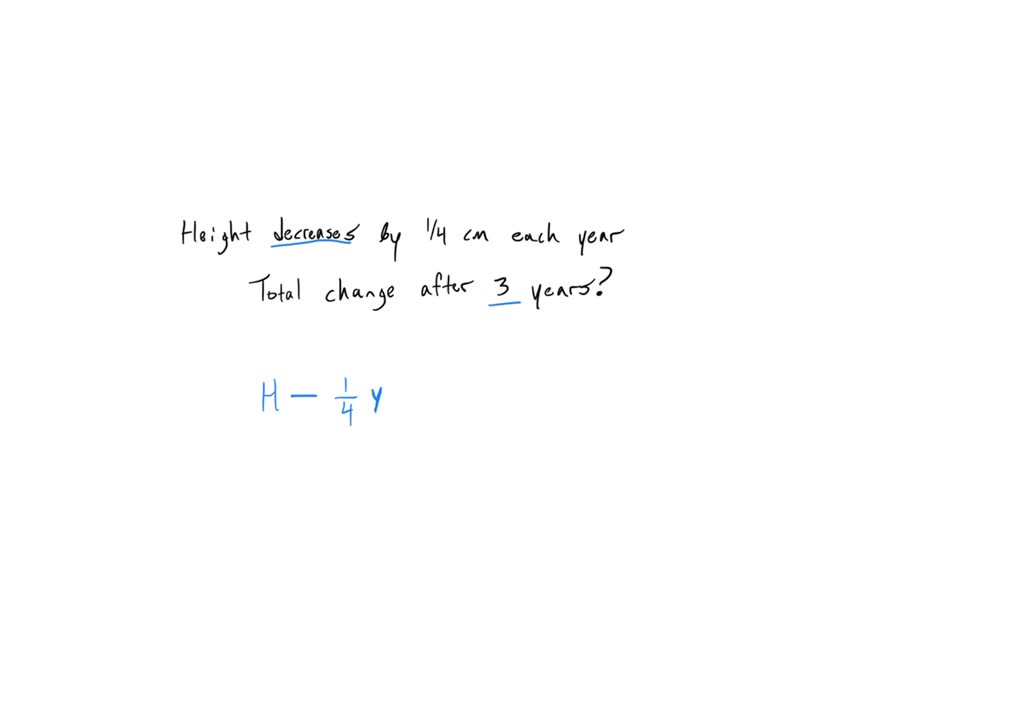 Height decreases by 1/4 cm each year
Total change after 3 years?
H - 1/4 y